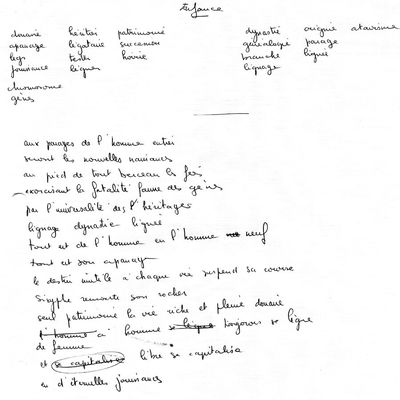 Enfance
douaire héritier patrimoine dynastie origine atavisme
apanage légataire successeur généalogie parage
legs tester hoirie branche lignée
jouissance léguer lignage
chromosome
gènes
aux parages de l'homme entier
seront les nouvelles naissances
au pied de tout berceau les fées
exorcisant la fatalité faune des gènes
par l'universalité de l'héritage
lignage dynastie lignée
tout est de l'homme en l'homme neuf
tout est son apanage
le destin inutile à chaque vie suspend sa course
Sisyphe remonte son rocher
seul patrimoine la vie riche et pleine douaire
l'homme à homme se lègue toujours se lègue
de femme
et se capitalise libre se capitalise
en d'éternelles jouissances